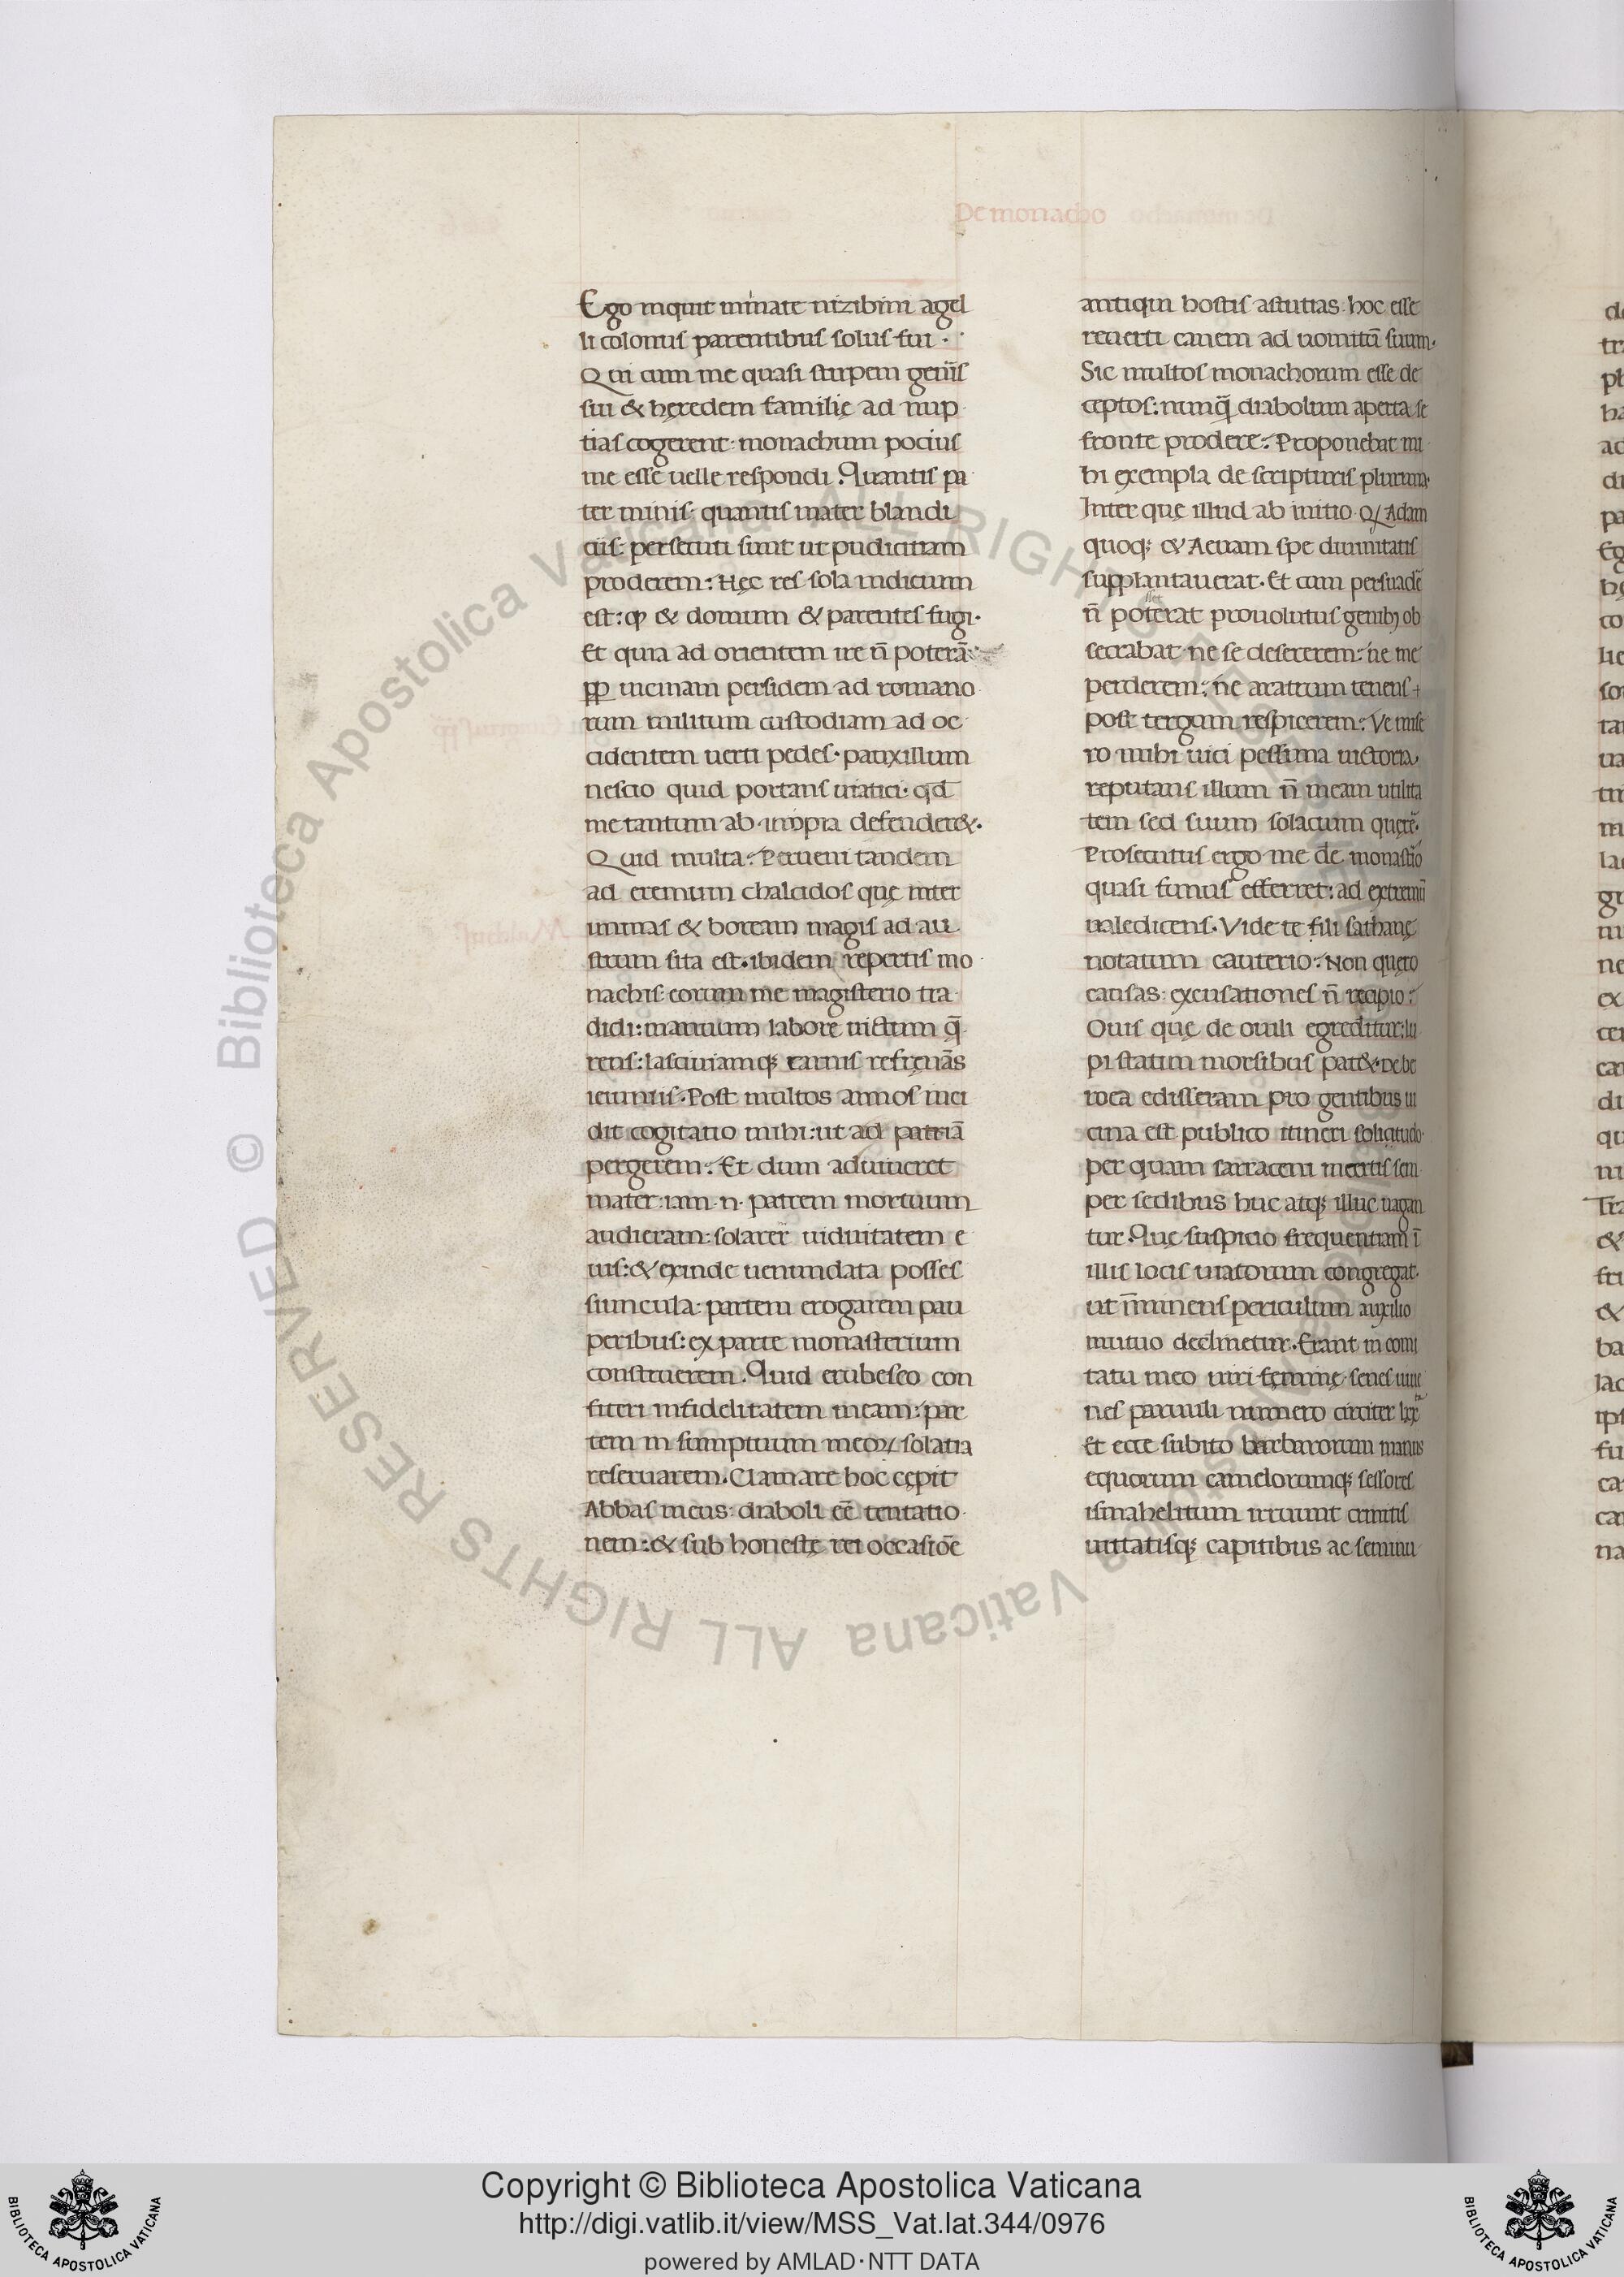 De monacho
Ego inquit mi nate nizibini agel
li colonus parentibus solus fui.
Qui cum me quasi stirpem gen̄is
sui & hęredem familię ad nup
tias cogerent: monachum pocius
me esse uelle respondi. Quantis pa
ter minis: quantis mater blandi
ciis: persecuti sunt ut pudicitiam
proderem: Hęc res sola indicium
est: ꝙ & domum & parentes fugi.
Et quia ad orientem ire n̄ poterā:
ꝓp uicinam persidem ad romano
rum militum custodiam ad oc
cidentem uerti pedes. pauxillum
nescio quid portans uiatici. qd̄
me tantum ab inopia defender&.
Quid multa: Perueni tandem
ad eremum chalcidos quę inter
immas & boream magis ad au
strum sita est. ibidem repertis mo
nachis: eorum me magisterio tra
didi: manuum labore uictum q̄
rens: lasciuiamq; carnis refręnās
ieiuniis. Post multos annos inci
dit cogitatio mihi: ut ad patriā
pergerem. Et dum adiuueret
mater: iam .n. patrem mortuum
audieram: solarer uiduitatem e
ius: & exinde uenundata posses
siuncula: partem erogarem pau
peribus: ex parte monasterium
construerem. Quid erubesco con
fiteri infidelitatem meam: par
tem in sumptuum meoꝝ solatia
reseruarem. Clamare hoc cępit
Abbas meus: diaboli eē tentatio
nem: & sub honestę rei occasiōe
antiqui hostis astutias. hoc esse
reuerti canem ad uomitū suum.
Sic multos monachorum esse de
ceptos: nunq̄ diabolum aperta se
fronte prodere: Proponebat mi
hi exempla de scripturis plurima.
Inter quę illud ab initio. ꝙ Adam
quoq; & Aeuam spe diuinitatis
supplantauerat. Et cum persuadē
n̄ poterat prouolutus genibꝫ ob
secrabat ne se desererem: ne me
perderem: ne aratrum tenens
post tergum respicerem: Ve mise
ro mihi uici pessima uictoria,
reputans illum n̄ meam utilita
tem sed suum solacium quęrē.
Prosecutus ergo me de monastio
quasi funus efferret: ad extremū
ualedicens. Vide te fili sathanę
notatum cauterio: Non quęro
causas: excusationes n̄ recipio:
Ouis quę de ouili egreditur: lu
pi statim morsibus pat&. De be
roea edisseram pro gentibus ui
cina est publico itineri solicitudo
per quam sarraceni incertis sem
per sedibus huc atq; illuc uagan
tur. Quę suspicio frequentiam ī
illis locis uiatorum congregat.
ut īminens periculum auxilio
mutuo declinetur. Erant in comi
tatu meo uiri feminę senes iuue
nes paruuli numero circiter lxx
Et ecce subito barbarorum manus
equorum camelorumq; sessores
ismahelitum irruunt crinitis
uittatisq; capitibus ac seminu
Copyright © Biblioteca Apostolica Vaticana
http://digi.vatlib.it/view/MSS_Vat.lat.344/0976
powered by AMLAD·NTT DATA
© Biblioteca Apostolica Vaticana ALL RIGHTS RESERVED
BIBLIOTECA APOSTOLICA VATICANA
BIBLIOTECA APOSTOLICA VATICANA